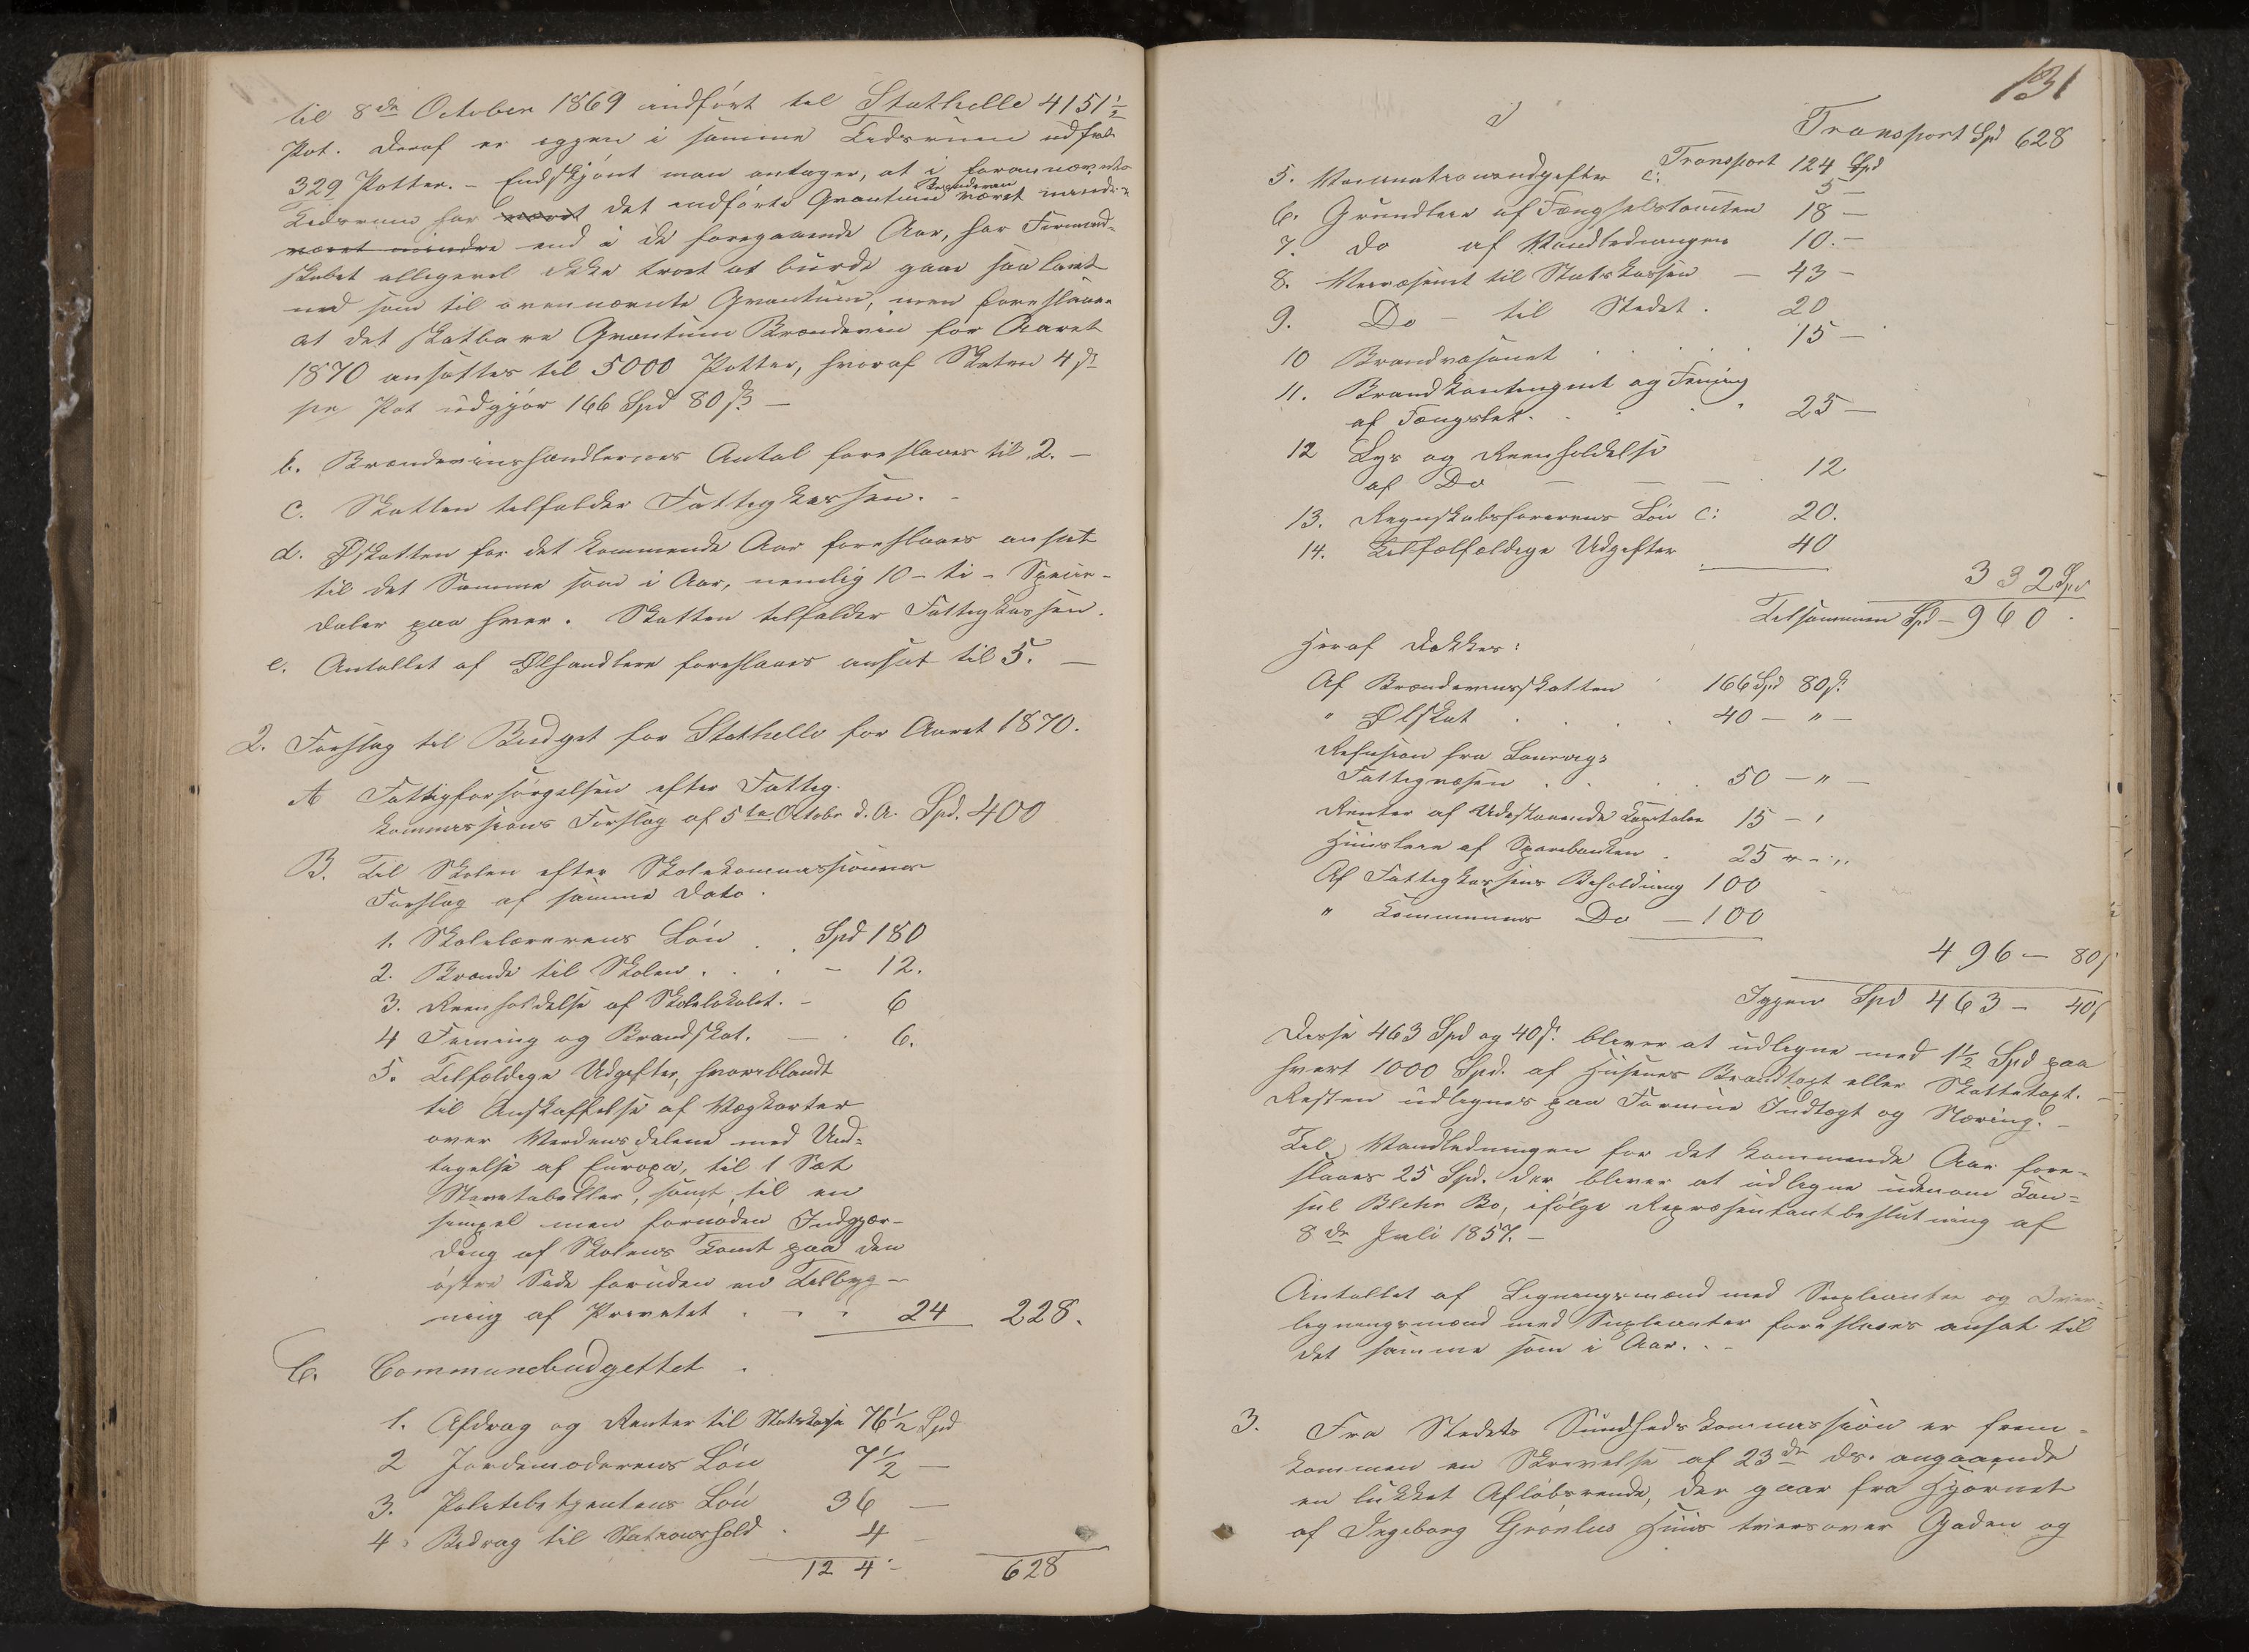 til 8de October 1869 indført til Stathelle 4151½
Pot. Deraf er igjen i samme Tidsrum udført
329 Potter. – Endskjønt man antager, at i forannævnte
Tidsrum har været det indførte Qvantum Brændeviin været mindre
været mindre end i de foregaaende Aar, har Formand-
skabet alligevel ikke troet at burde gaae saa langt
ned som til ovennævnte Qvantum, men foreslaaer
at det skatbare Qvantum Brændeviin for Aaret
1870 ansættes til 5000 Potter, hvoraf Skatten 4 s
pr Pot udgjør 166 Spd 80 s –
b. Brændeviinshandlernes Antal foreslaaes til 2. –
c. Skatten tilfalder Fattigkassen. –
d. Ølskatten for det kommende Aar foreslaaes ansat
til det Samme som i Aar, nemlig 10 – ti – Specie-
daler paa hver. Skatten tilfalder Fattigkassen.
e. Antallet af Ølhandlere foreslaaes ansat til 5. –
2. Forslag til Budget for Stathelle for Aaret 1870.
A Fattigforsørgelsen efter Fattig-
kommissions Forslag af 5te Octobr d. A. Spd. 400
B. Til Skolen efter Skolekommissionens
Forslag af samme Dato.
1. Skolelærerens Løn . . Spd 180
2. Brænde til Skolen . . . – 12.
3. Reenholdelse af Skolelokalet. – 6
4 Feining og Brandskat. – . 6.
5. Tilfældige Udgifter, hvoriblandt
til Anskaffelse af Vægkarter
over Verdensdelene med Und-
tagelse af Europa, til 1 Sæt
Stavetabeller, samt til en
simpel men fornøden Indgjær-
ding af Skolens Tomt paa den
østre Side foruden en Tilbyg-
ning af Privetet . – . 24 228.
C. Communebudgettet .
1. Afdrag og Renter til Statskasse 76½ Spd
2 Jordemoderens Løn 7½ –
3. Politibetjentens Løn 36 –
4. Bidrag til Stationshold . 4 –
124 – 628
131
Transport Spd 628
Transport 124 Spd
5. Vaccinationsudgifter c: 5 –
6. Grundleie af Fængselstomten 18 –
7. do af Vandledningen 10. –
8. Veivæsenet til Statskassen – 43 –
9. Do – til Stedet . 20
10 Brandvæsenet . . . . 15 –
11. Brandkontingent og Feiing
af Fængslet . . . . 25 –
12 Lys og Reenholdelse
af Do – – – . 12
13. Regnskabsførerens Løn c: 20.
14. Tilfælfældige Udgifter 40
332 Spd
Tilsammen Spd – 960 .
Heraf dækkes:
Af Brændeviinsskatten 166 Spd 80 s
" Ølskat . . . 40 – " –
Refusion fra Laurvigs
Fattigvæsen . . . 50 – " –
Renter af Udestaaende Kapitaler 15 – "
Huusleie af Sparebanken . 25 – "
Af Fattigkassens Beholdning 100
" Kommunens Do – 100
496 – 80 s
Igjen Spd 463 – 40 s
Disse 463 Spd og 40 s bliver at udligne med 1½ Spd paa
hvert 1000 Spd. af Husenes Brandtaxt eller Skattetaxt. –
Resten udlignes paa Formue Indtægt og Næring. –
Til Vandledningen for det kommende Aar fore-
slaaes 25 Spd. der bliver at udligne udenom Con-
sul Blehr Bo, ifølge Repræsentantbeslutning af
8de Juli 1857. –
Antallet af Ligningsmænd med Supleanter og Over-
ligningsmænd med Supleanter foreslaaes ansat til
det samme som i Aar. . –
3. Fra Stedets Sundhedskommission er frem-
kommen en Skrivelse af 23de ds. angaaende
en lukket Afløbsrende, der gaar fra Hjørnet
af Ingeborg Grønlus Huus tversover Gaden og